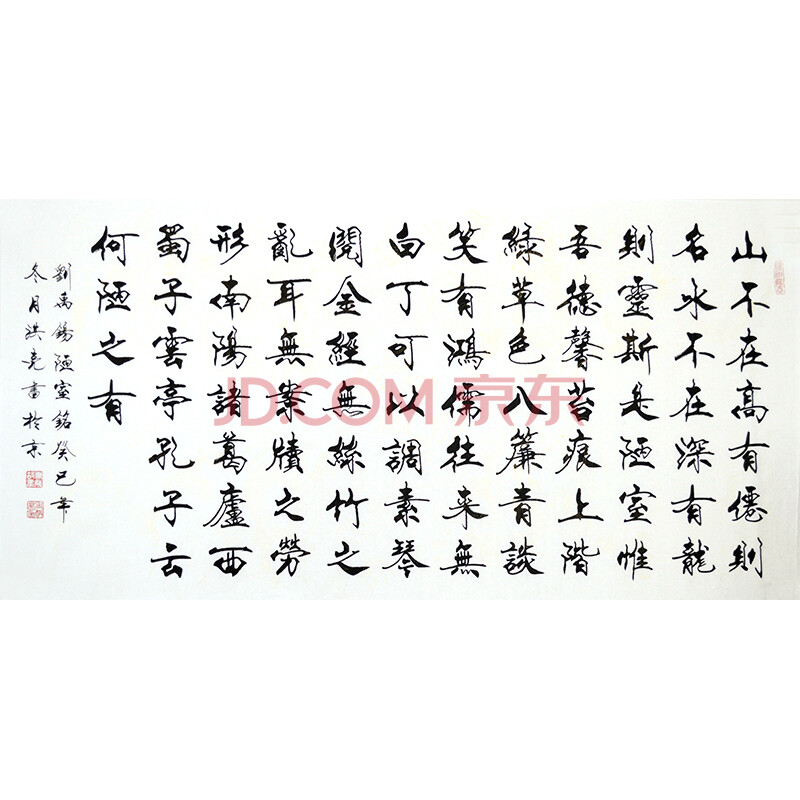 山不在高有僊則
名水不在深有龍
則靈斯是陋室惟
吾德馨苔痕上階
綠草色入簾青談
笑有鴻儒往来無
白丁可以調素琴
閱金經無絲竹之
亂耳無案牘之勞
形南陽諸葛廬西
蜀子雲亭孔子云
何陋之有
劉禹錫陋室銘癸巳年
冬月洪亮書於京
JD.COM 京东